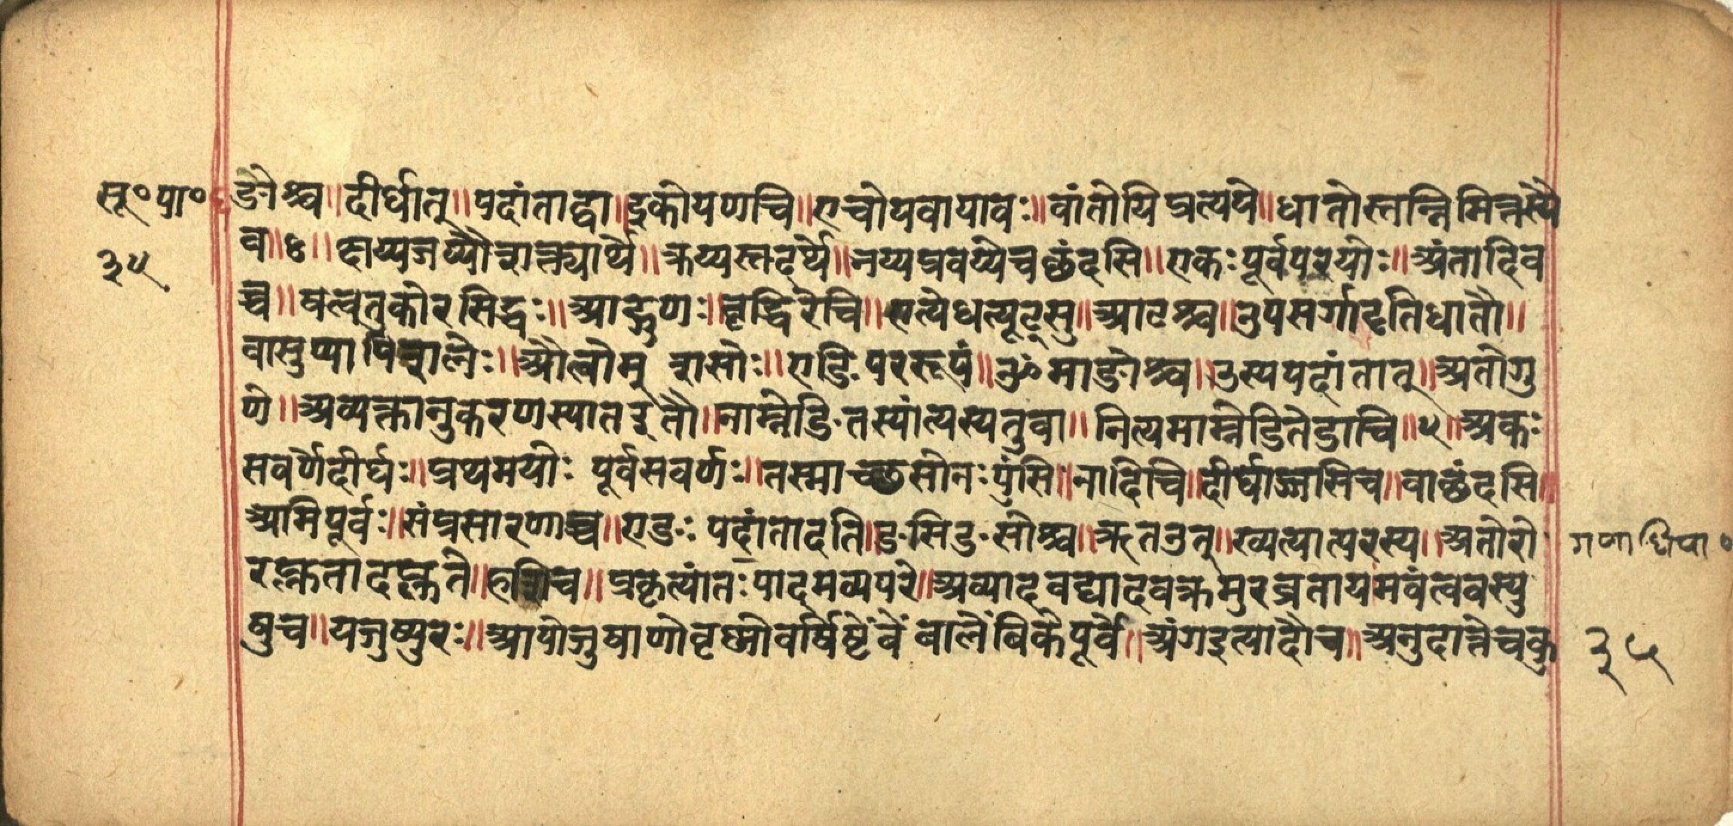 सू॰पा॰६
३५
ङोश्च॥दीर्घात्॥पदांताद्वा॥इकोयणचि॥एचोयवायावः॥वांतोयिप्रत्यये॥धातोस्तन्निमित्तस्यै
व॥४॥क्षय्यजय्यौशक्यार्थे॥क्रय्यस्तदर्थे॥नय्यप्रवय्येचछंदसि॥एकःपूर्वपरयोः॥अंतादिव
च्च॥षत्वतुकोरसिद्धः॥आद्गुणः॥वृद्धिरेचि॥एत्येधत्यूठ्सु॥आटश्च॥उपसर्गादृतिधातौ॥
वासुप्यापिशलेः॥औतोम्शसोः॥एङिपररूपं॥ॐमाङोश्च॥उस्यपदांतात्॥अतोगु
णे॥अव्यक्तानुकरणस्यातइतौ॥नाम्रेडितस्यांत्यस्यतुवा॥नित्यमाम्रेडितेडाचि॥५॥अकः
सवर्णेदीर्घः॥प्रथमयोः पूर्वसवर्णः॥तस्माच्छसोनःपुंसि॥नादिचि॥दीर्घाज्जसिच॥वाछंदसि॥
अमिपूर्वः॥संप्रसारणाच्च॥एङः पदांतादति॥ङसिङसोश्च॥ऋतउत्॥ख्यत्यात्परस्य॥अतोरो
रप्लुतादप्लुते॥हशिच॥प्रकृत्यांतःपादमव्यपरे॥अव्यादवद्यादवक्रमुरव्रतायमवंत्ववस्यु
षुच॥यजुष्युरः॥आपोजुषाणोवृष्णोवर्षिष्ठेंबेंबालेंबिकेपूर्वे॥अंगइत्यादौच॥अनुदात्तेचकु
गणाधिपा॰
३५